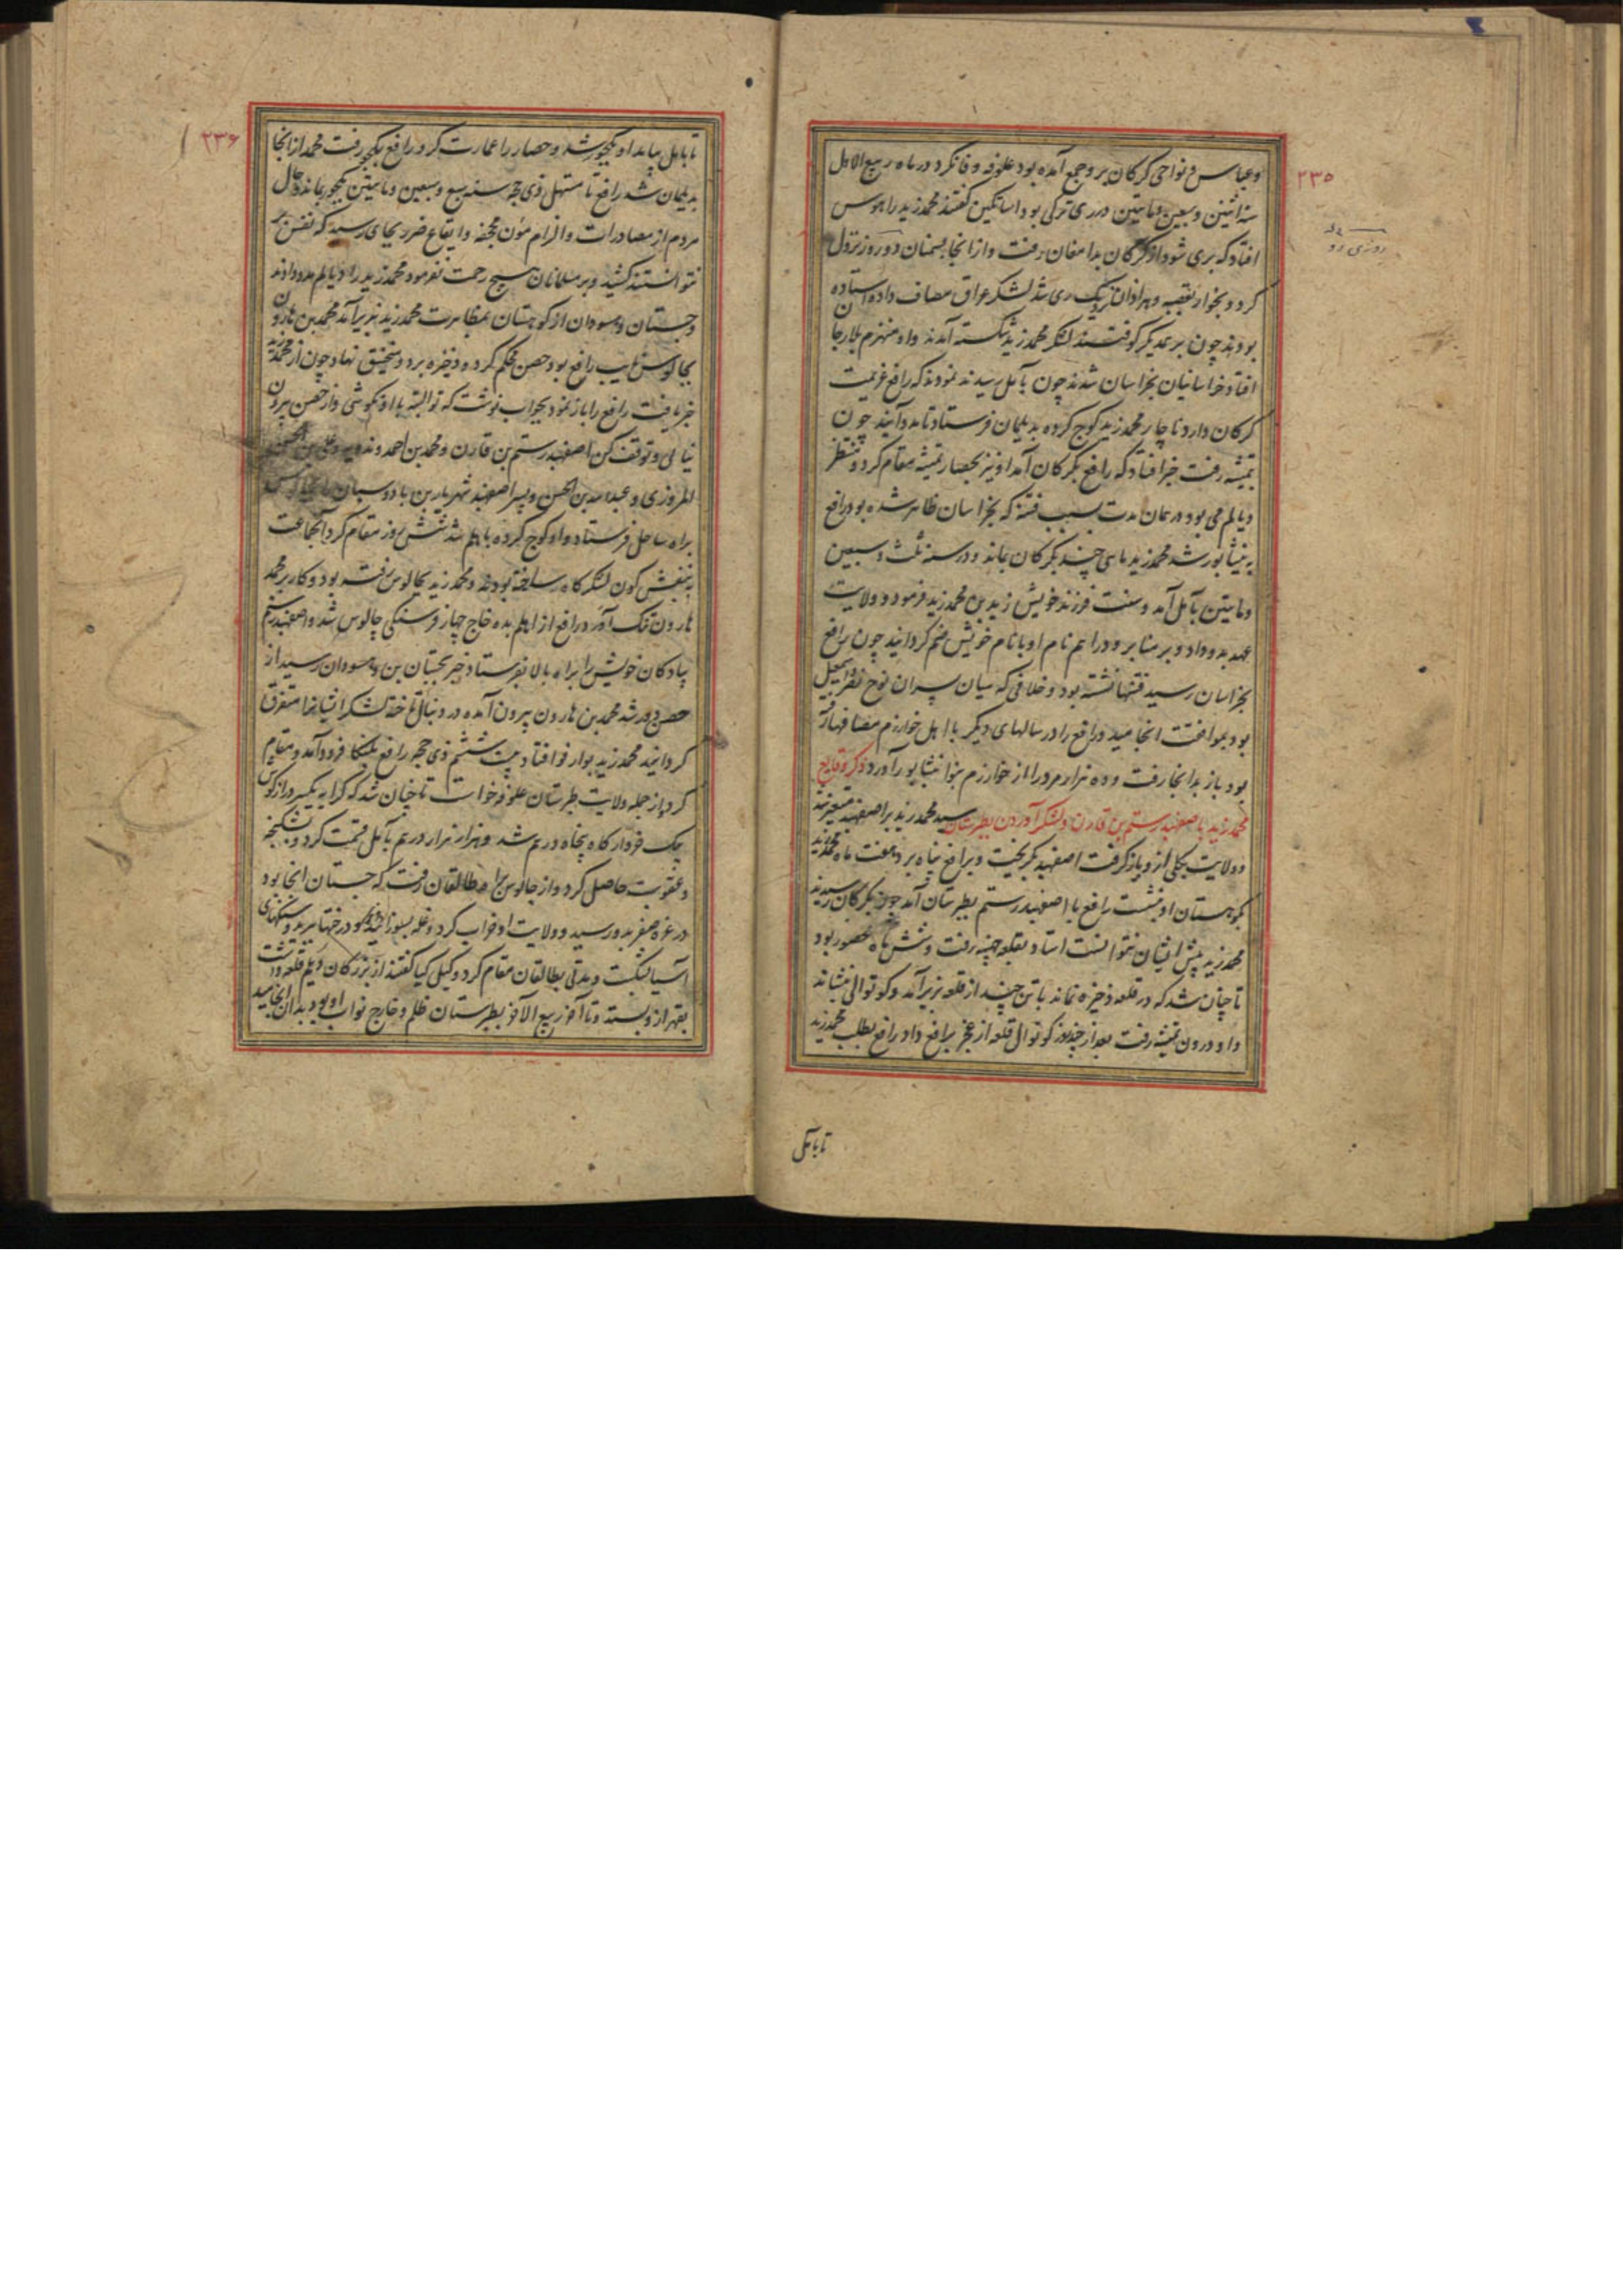 ۲۳۵
وعباس در نواحی کرکان بر وجمع آمده بود علوفه وفا نکرد در ماه ربیع الاول
سنه اثنین وسبعین ومایتین در ری ترکی بود اساتکین کفتند محمد زید را هوس
افتاد که بری شود از کرکان بدامغان رفت واز انجا بسمنان دو روز نزول
کرد و بخوار نزدیک ری شد لشکر عراق مصاف داده استاده
بودند چون بر همدیکر کوفتند لشکر محمد زید شکسته آمدند واو منهزم بلارجا
افتاد خراسانیان بخراسان شدند چون بآمل رسیدند نمودند که رافع عزیمت
کرکان دارد ناچار محمد زید کوج کرده بدیلمان فرستاد تا مدد آیند چون
تمیشه رفت خبر افتاد که رافع بکرکان آمد او نیز بحصار تمیشه مقام کرد و منتظر
دیالم می بود در همان مدت بسبب فتنه که بخراسان ظاهر شده بود رافع
به نیشابور شد محمد زید ماهی چند بکرکان بماند ودر سنه ثلث وسبعین
ومایتین بآمل آمد وسنت فرزند خویش زید بن محمد زید فرمود وولایت
عهد بدو داد وبر منابر ودراهم نام او با نام خویش ضم کردانید چون رافع
بخراسان رسید فتنها نشسته بود وخلافی که میان پسران نوح نصر واسمعیل
بود بموافقت انجامید ورافع را در سالهای دیکر با اهل خوارزم مصافها رفته
بود باز بدانجا رفت وده هزار مرد را از خوارزم بنوا بنشابور آورد ذکر وقایع
محمد زید با اصفهبد رستم بن قارن ولشکر آوردن بطبرستان سید محمد زید بر اصفهبد متغیر شد
وولایت بکلی ازو باز کرفت اصفهبد بکریخت وبرافع پناه برد هفت ماه محمد زید
بکوهستان او بنشست رافع با اصفهبد رستم بطبرستان آمد چون بکرکان رسیدند
محمد زید پیش ایشان نتوانست استاد بقلعه جهینه رفت وشش ماه محصور بود
تا چنان شد که در قلعه ذخیره نماند با تن چند از قلعه بزیر آمد وکوتوالی بنشاند
واو درون تمیشه رفت بعد از چند روز کوتوال قلعه از عجز برافع داد ورافع بطلب محمد زید
تا بآمل
۲۳۶
تا بآمل بیامد او بکجور شد وحصار را عمارت کرد رافع بکجور رفت محمد از انجا
بدیلمان شد رافع تا مستهل ذی حجه سنه سبع وسبعین ومایتین بکجور بماند وحال
مردم از مصادرات والزام مؤن مجحفه وایقاع ضرر بجای رسید که نفس بر
نتوانستند کشید وبر مسلمانان هیچ رحمت نفرمود محمد زید را دیالم مدد دادند
وجستان وهسودان از کوهستان بمظاهرت محمد زید بزیر آمد محمد بن هارون
بچالوس نایب رافع بود حصن محکم کرده وذخیره برد ومنجنیق نهاد چون از محمد زید
خبر یافت رافع را باز نمود بجواب نوشت که تو البته با او نکوشی واز حصن بیرون
نیائی وتوقف کن اصفهبد رستم بن قارن ومحمد بن احمد وندویه وعلی بن الحسین
المروزی وعبدالله بن الحسن وپسر اصفهبد شهریار بن بادوسپان
براه ساحل فرستاد واو کوج کرده باهلم شد شش روز مقام کرد آنجماعت
به بنفش کون لشکرکاه ساخته بودند ومحمد زید بچالوس رفته بود وکار بر محمد
هارون تنک آورد رافع از اهلم بده خاج چهار فرسنکی چالوس شد واصفهبد رستم
پیادکان خویش را براه بالا بفرستاد خبر بجستان بن وهسودان رسید از
حصن دور شد محمد بن هارون بیرون آمده در دنبال تاخته لشکر ایشانرا متفرق
کردانید محمد زید بوارفو افتاد بیست ششم ذی حجه رافع بلنکا فرود آمد ومقام
کرد واز جمله ولایت طبرستان علوفه خواست تا چنان شد که کرا به یکسر درازکوش
یک خروار کاه پنجاه درم شد وهزار هزار درم بآمل قسمت کرد وبشکنجه
وعقوبت حاصل کرد واز چالوس براه طالقان رفت که جستان انجا بود
در غره صفر بدو رسید وولایت او خراب کرد وغله بسوزانید ودرختها ببرید وسنکهای
آسیا بشکست ومدتی بطالقان مقام کرد وکیل کیا کفتند از بزرکان دیلم قلعه داشت
بقهر ازو بستد وتا آخر ربیع الآخر بطبرستان ظلم وخارج نواب او بود بدان انجامید